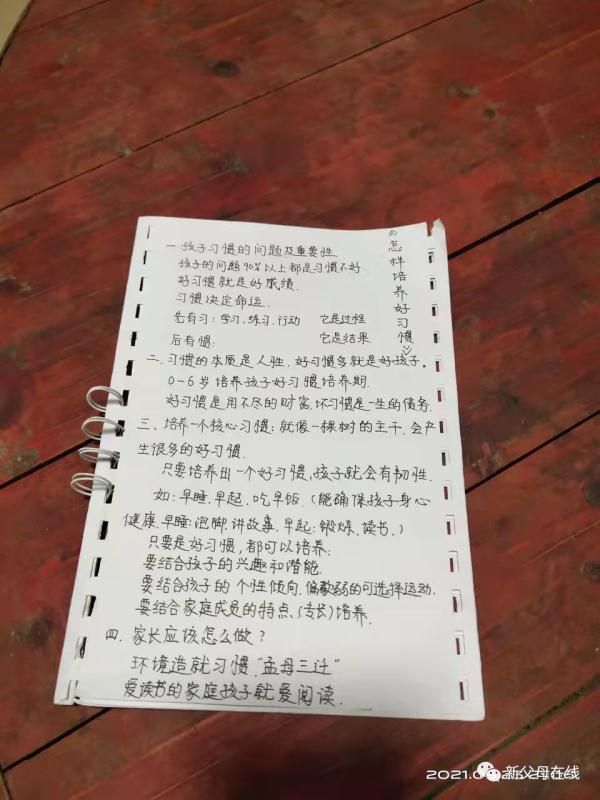 《怎样培养好习惯》
一.孩子习惯的问题及重要性
孩子的问题90%以上都是习惯不好.
好习惯就是好成绩.
习惯决定命运.
先有习:学习、练习、行动 它是过程
后有惯: 它是结果
二、习惯的本质是人性.好习惯多就是好孩子。
0-6岁培养孩子好习惯培养期.
好习惯是用不尽的财富,坏习惯是一生的债务.
三、培养一个核心习惯:就像一棵树的主干.会产
生很多的好习惯.
只要培养出一个好习惯,孩子就会有韧性.
如:早睡、早起、吃早饭.(能确保孩子身心
健康.早睡:泡脚讲故事.早起:锻炼、读书.)
只要是好习惯,都可以培养:
要结合孩子的兴趣和潜能.
要结合孩子的个性倾向.偏软弱的可选择运动.
要结合家庭成员的特点、(专长)培养.
四.家长应该怎么做?
环境造就习惯."孟母三迁"
爱读书的家庭孩子就爱阅读.
新父母在线